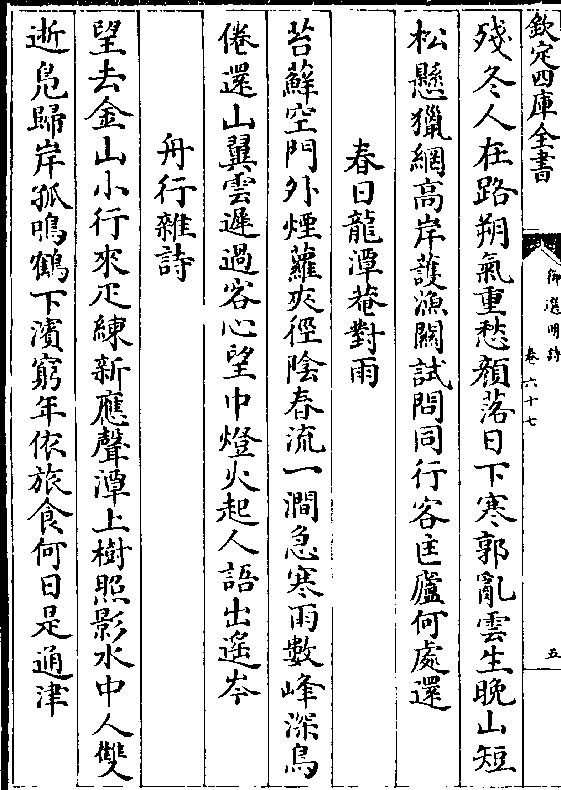 欽定四庫全書
御選明詩
卷六十七
五
殘冬人在路朔氣重愁顏落日下寒郭亂雲生晚山短
松懸獵網高岸護漁關試問同行客匡廬何處還
春日龍潭菴對雨
苔蘚空門外煙蘿夾徑陰春流一澗急寒雨數峰深鳥
倦還山翼雲遲過客心望中燈火起人語出遙岑
舟行雜詩
望去金山小行來疋練新應聲潭上樹照影水中人雙
逝鳧歸岸孤鳴鶴下濱窮年依旅食何日是通津